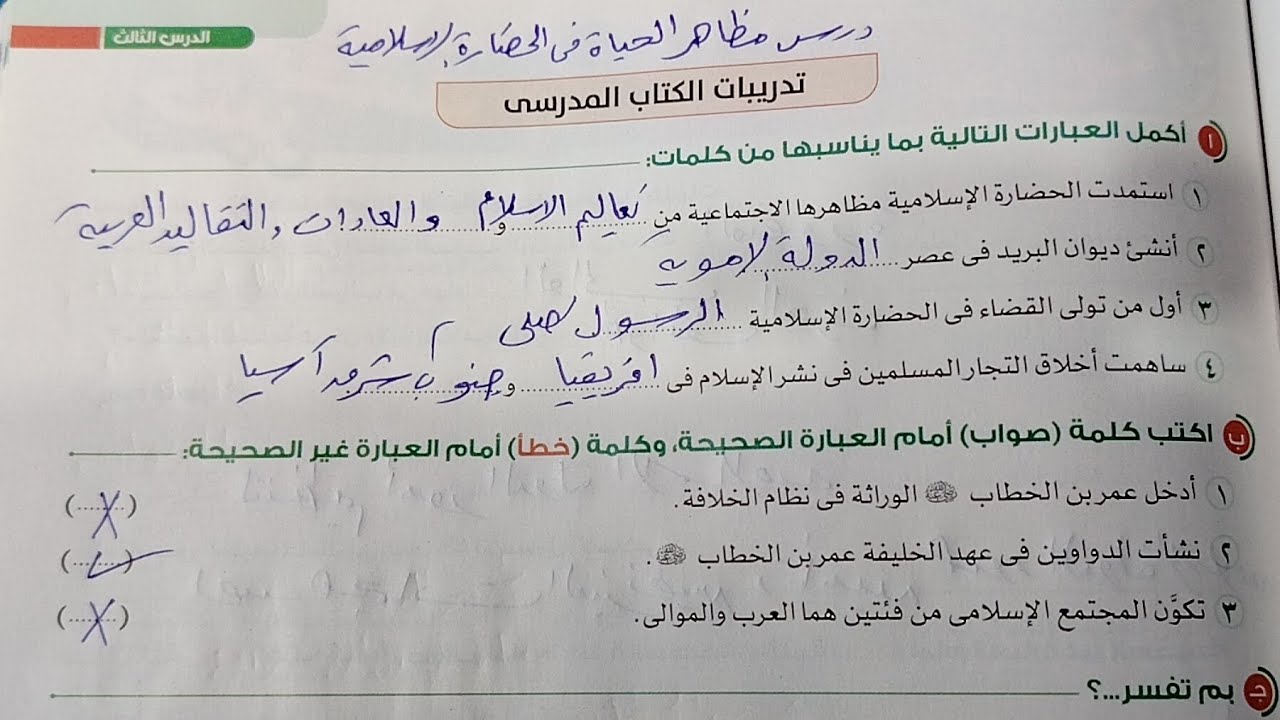 الدرس الثالث
درس مظاهر الحياة فى الحضارة الإسلامية
تدريبات الكتاب المدرسى
ا أكمل العبارات التالية بما يناسبها من كلمات:
١ استمدت الحضارة الإسلامية مظاهرها الاجتماعية من تعاليم الاسلام و والعادات والتقاليد العربية
٢ أنشئ ديوان البريد فى عصر الدولة الاموية
٣ أول من تولى القضاء فى الحضارة الإسلامية الرسول صلى
٤ ساهمت أخلاق التجار المسلمين فى نشر الإسلام فى افريقيا و جنوب شرق آسيا
ب اكتب كلمة (صواب) أمام العبارة الصحيحة، وكلمة (خطأ) أمام العبارة غير الصحيحة:
١ أدخل عمر بن الخطاب الوراثة فى نظام الخلافة. (X)
٢ نشأت الدواوين فى عهد الخليفة عمر بن الخطاب . (✓)
٣ تكوَّن المجتمع الإسلامى من فئتين هما العرب والموالى. (X)
ج بم تفسر...؟